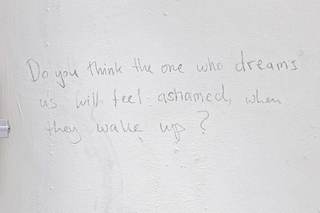 Do you think the one who dreams
us will feel ashamed, when
they wake up?